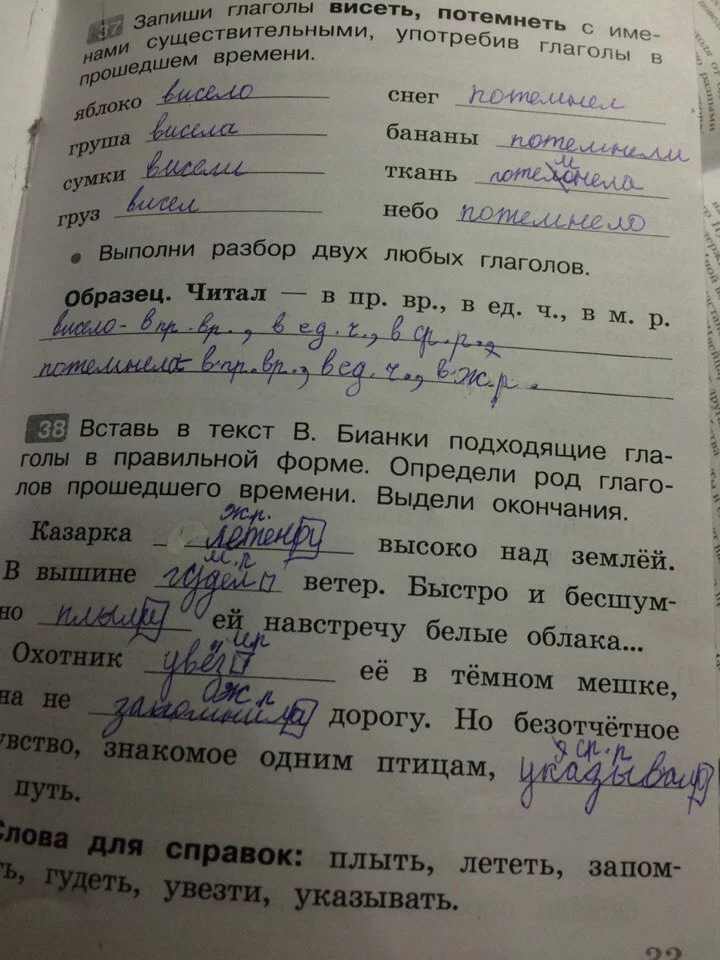 37 Запиши глаголы висеть, потемнеть с име-
нами существительными, употребив глаголы в
прошедшем времени.
яблоко висело снег потемнел
груша висела бананы потемнели
сумки висели ткань потемнела
груз висел небо потемнело
• Выполни разбор двух любых глаголов.
Образец. Читал — в пр. вр., в ед. ч., в м. р.
висело - в пр. вр., в ед. ч., в ср. р.
потемнела - в пр. вр., в ед. ч., в ж. р.
38 Вставь в текст В. Бианки подходящие гла-
голы в правильной форме. Определи род глаго-
лов прошедшего времени. Выдели окончания.
ж.р.
Казарка высоко над землёй.
м.р
В вышине гудел ветер. Быстро и бесшум-
но плыли ей навстречу белые облака...
Охотник увёз её в тёмном мешке,
ж.р
на не запомнила дорогу. Но безотчётное
увство, знакомое одним птицам,
ср.р
путь.
Слова для справок: плыть, лететь, запом-
ть, гудеть, увезти, указывать.
33